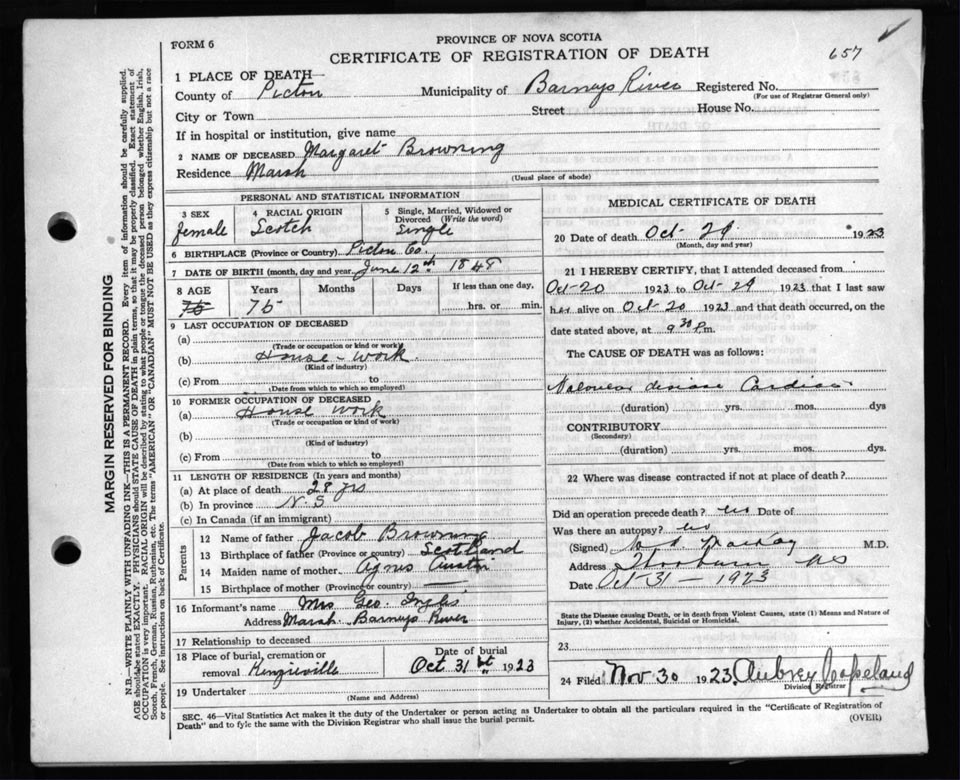 PROVINCE OF NOVA SCOTIA
FORM 6
CERTIFICATE OF REGISTRATION OF DEATH
657
1 PLACE OF DEATH—
County of Pictou Municipality of Barneys River Registered No.
(For use of Registrar General only)
City or Town Street House No.
If in hospital or institution, give name
2 NAME OF DECEASED Margaret Browning
Residence Marsh
(Usual place of abode)
PERSONAL AND STATISTICAL INFORMATION
3 SEX female
4 RACIAL ORIGIN Scotch
5 Single, Married, Widowed or Divorced (Write the word) Single
6 BIRTHPLACE (Province or Country) Pictou Co.
7 DATE OF BIRTH (month, day and year) June 12th 1848
8 AGE Years Months Days If less than one day,
75 hrs. or min.
9 LAST OCCUPATION OF DECEASED
(a)
(Trade or occupation or kind of work)
(b) House-work
(Kind of industry)
(c) From to
(Date from which to which so employed)
10 FORMER OCCUPATION OF DECEASED
(a) House work
(Trade or occupation or kind of work)
(b)
(Kind of industry)
(c) From to
(Date from which to which so employed)
11 LENGTH OF RESIDENCE (In years and months)
(a) At place of death 28 yrs
(b) In province N.S
(c) In Canada (if an immigrant)
Parents
12 Name of father Jacob Browning
13 Birthplace of father (Province or Country) Scotland
14 Maiden name of mother Agnes Austin
15 Birthplace of mother (Province or country) —
16 Informant's name Mrs Geo. Inglis
Address Marsh Barneys River
17 Relationship to deceased
18 Place of burial, cremation or removal Kenzieville
Date of burial
Oct 31st 1923
19 Undertaker
(Name and Address)
MEDICAL CERTIFICATE OF DEATH
20 Date of death Oct-29 1923
(Month, day and year)
21 I HEREBY CERTIFY, that I attended deceased from
Oct-20 1923 to Oct-29 1923 that I last saw
her alive on Oct-20 1923 and that death occurred, on the
date stated above, at 9 30 P.m.
The CAUSE OF DEATH was as follows:
disease Cardiac
(duration) yrs. mos. dys
CONTRIBUTORY
(Secondary)
(duration) yrs. mos. dys.
22 Where was disease contracted if not at place of death?
Did an operation precede death? no Date of
Was there an autopsy? no
(Signed) MacKay M.D.
Address Thorburn NS
Date Oct-31-1923
State the Disease causing Death, or in death from Violent Causes, state (1) Means and Nature of
Injury, (2) whether Accidental, Suicidal or Homicidal.
23
24 Filed Nov 30 1923. Aubrey Copeland
Division Registrar
SEC. 46—Vital Statistics Act makes it the duty of the Undertaker or person acting as Undertaker to obtain all the particulars required in the "Certificate of Registration of
Death" and to fyle the same with the Division Registrar who shall issue the burial permit.
(OVER)
MARGIN RESERVED FOR BINDING
N.B.—WRITE PLAINLY WITH UNFADING INK—THIS IS A PERMANENT RECORD. Every item of information should be carefully supplied.
AGE should be stated EXACTLY. PHYSICIANS should STATE CAUSE OF DEATH in plain terms, so that it may be properly classified. Exact statement of
OCCUPATION is very important. RACIAL ORIGIN will be described by stating to what people or tongue the deceased person belonged whether English, Irish,
Scotch, French, German, Russian, Ruthenian, etc. The terms "AMERICAN" OR "CANADIAN" MUST NOT BE USED as they express citizenship but not a race
or people. See instructions on back of Certificate.